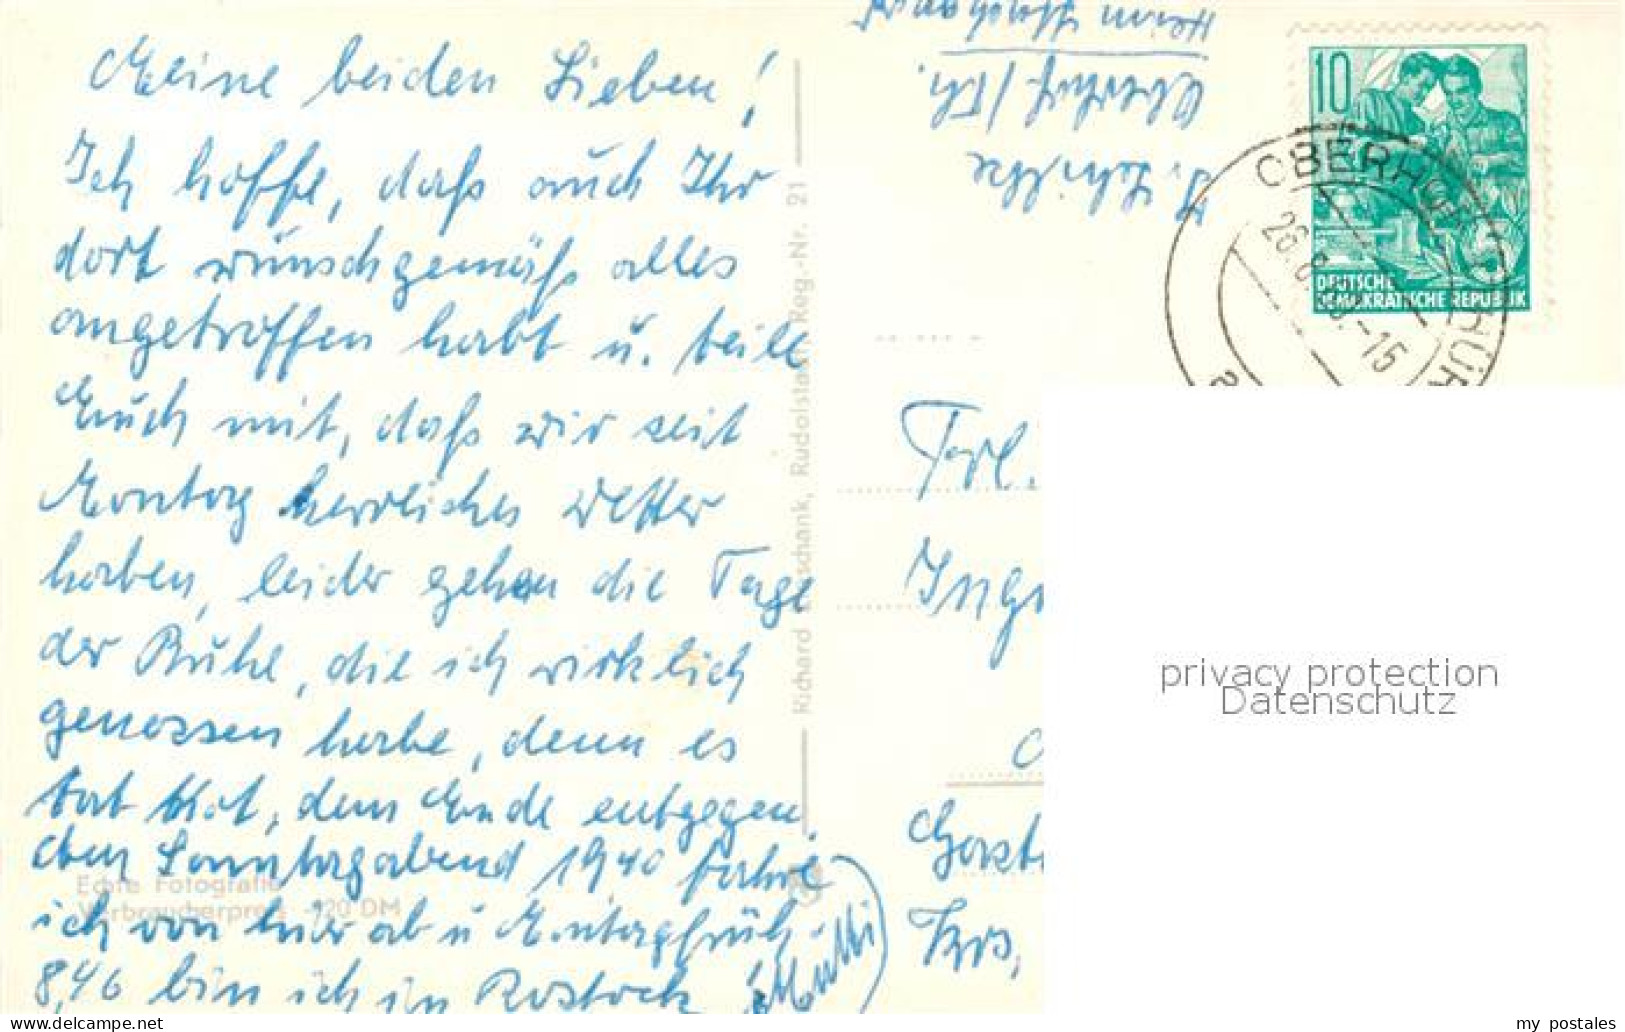 Meine beiden Lieben!
Ich hoffe, daß auch Ihr
dort wunschgemäß alles
angetroffen habt u. teile
Euch mit, daß wir seit
Montag herrliches Wetter
haben, leider gehen die Tage
der Ruhe, die ich wirklich
genossen habe, denn es
tat Not, dem Ende entgegen.
Am Sonntagabend 19⁴⁰ fahre
ich von hier ab u Montagfrüh
8,46 bin ich in Rostock
(Mutti)
Echte Fotografie
Verbraucherpreis -,20 DM
Richard Zieschank, Rudolstadt Reg.-Nr. 21
Oberhof/Th.
10
DEUTSCHE
DEMOKRATISCHE REPUBLIK
OBERHOF THÜR
26.8. -15
a
Frl.
Krs,
privacy protection
Datenschutz
www.delcampe.net
my_postales